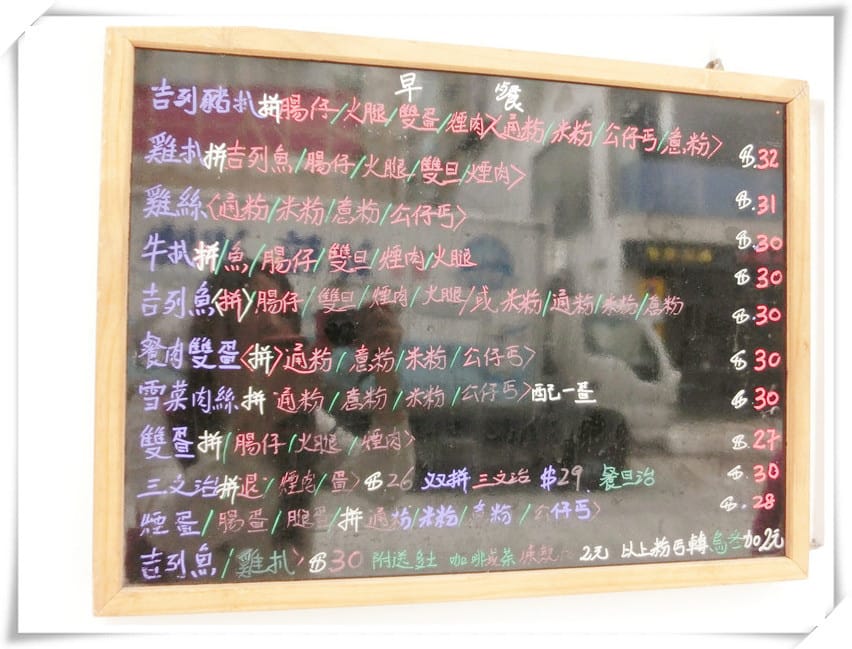 早餐
吉列豬扒拼腸仔/火腿/雙蛋/煙肉〈通粉/米粉/公仔丐/意粉〉 $.32
雞扒拼吉列魚/腸仔/火腿/雙旦/煙肉〉 $.31
雞絲〈通粉/米粉/意粉/公仔丐〉 $.30
牛扒拼/魚/腸仔/雙旦/煙肉/火腿 $.30
吉列魚〈拼〉腸仔/雙旦/煙肉/火腿/或米粉/通粉/米粉/意粉 $.30
餐肉雙蛋〈拼〉通粉/意粉/米粉/公仔丐〉 $.30
雪菜肉絲拼通粉/意粉/米粉/公仔丐〉配一蛋 $.30
雙蛋拼/腸仔/火腿/煙肉〉 $.27
三文治拼/煙肉/蛋〉$.26 双拼三文治 $29 餐旦治 $.30
煙蛋/腸蛋/腿蛋/拼通粉/米粉/意粉/公仔丐〉 $.28
吉列魚/雞扒〉$30 附送多士 咖啡或茶 凍飲 2元 以上粉丐轉烏冬加2元